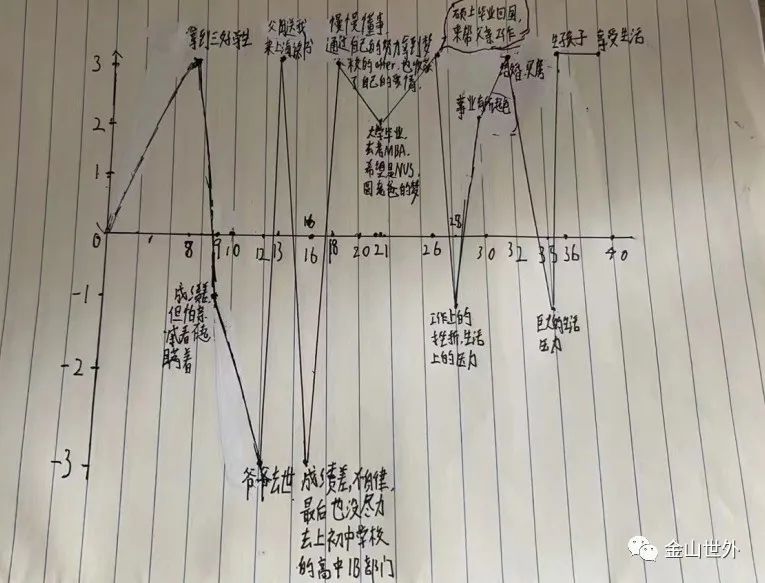 拿到三好学生
父母送我
来上海读书
慢慢懂事
通过自己的努力拿到梦
校的offer,也收获
了自己的爱情,
硕士毕业回国,
来帮父亲工作
结婚,买房
生孩子 享受生活
事业有所起色
大学毕业,
去考MBA,
希望是NUS,
圆爸爸的梦
3
2
1
0
8 9 10 12 13 16 18 20 21 26 28 30 32 35 36 40
16
-1
-2
-3
成绩差,
但怕家
瞒着
工作上的
挫折,生活
上的压力
巨大的生活
压力
爷爷去世
成绩差,不自律,
最后也没尽力
去上初中学校
的高中IB部门
金山世外